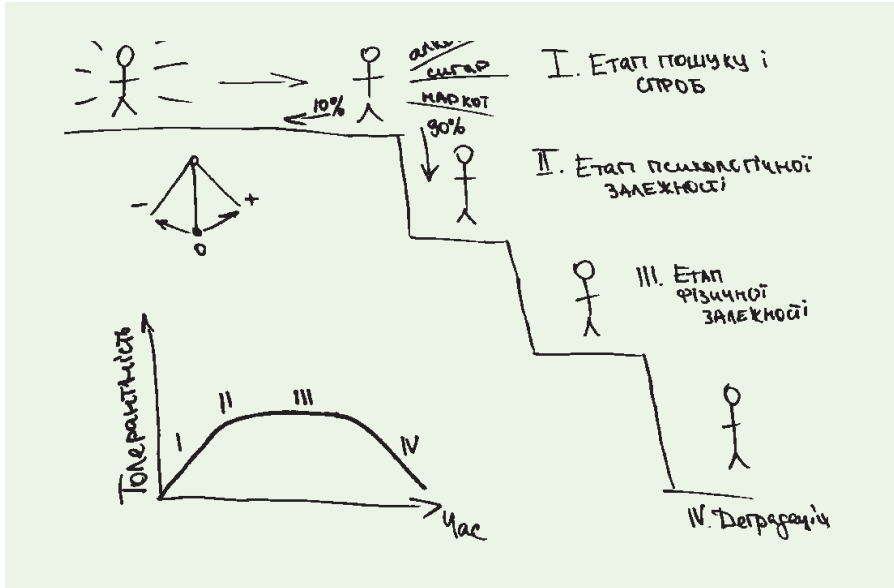 алко
сигар
наркот
10%
90%
I. Етап пошуку і
спроб
II. Етап психологічної
залежності
III. Етап
фізичної
залежності
IV. Деградація
- +
0
Толерантність
I
II
III
IV
Час